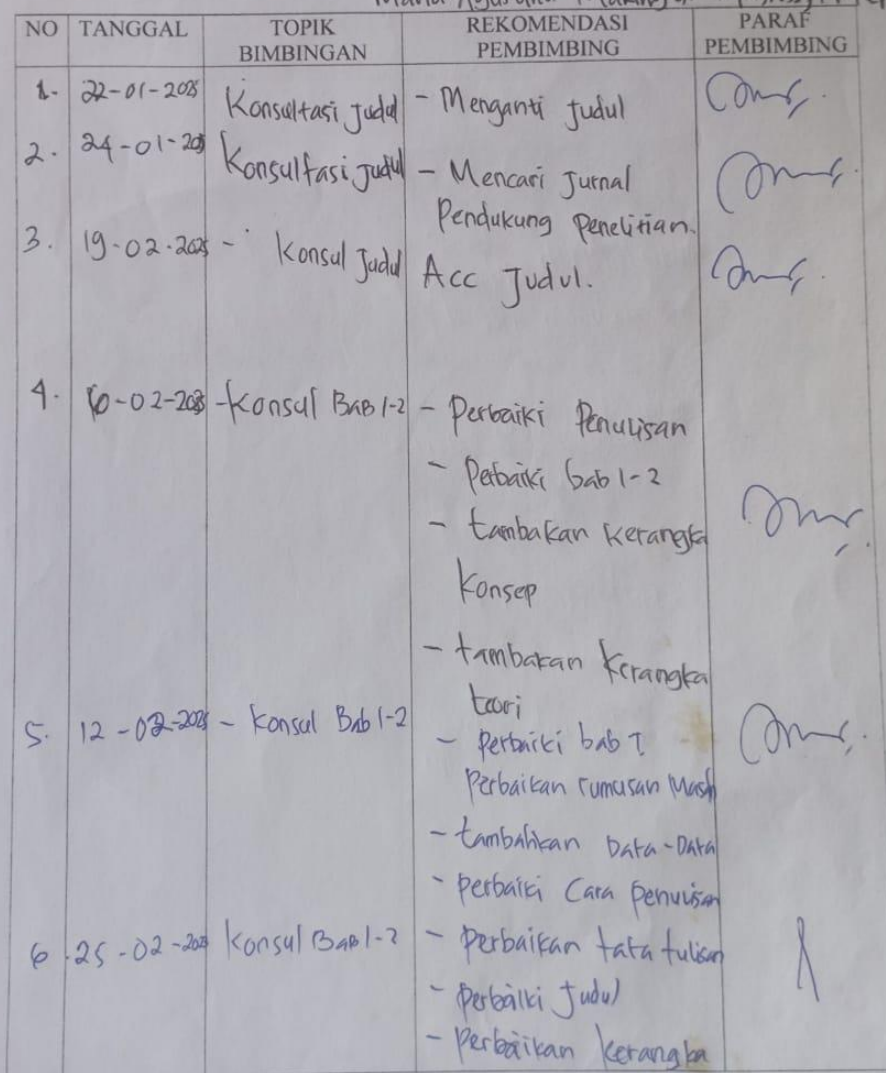 NO TANGGAL TOPIK BIMBINGAN REKOMENDASI PEMBIMBING PARAF PEMBIMBING
1. 22-01-2025 Konsultasi Judul - Menganti Judul
2. 24-01-2025 Konsultasi Judul - Mencari Jurnal
Pendukung Penelitian.
3. 19-02-2025 - Konsul Judul Acc Judul.
4. -02-2025 - Konsul BAB 1-2 - Perbaiki Penulisan
- Perbaiki bab 1-2
- tambakan kerangka
Konsep
- tambakan kerangka
teori
5. 12-02-2025 - Konsul Bab 1-2
- Perbaiki bab I.
Perbaikan rumusan Mash
- tambahkan Data-Data
- Perbaiki Cara Penulisan
6. 25-02-2025 Konsul BAB 1-2 - Perbaikan tata tulisan
- Perbaiki Judul
- Perbaikan kerangka